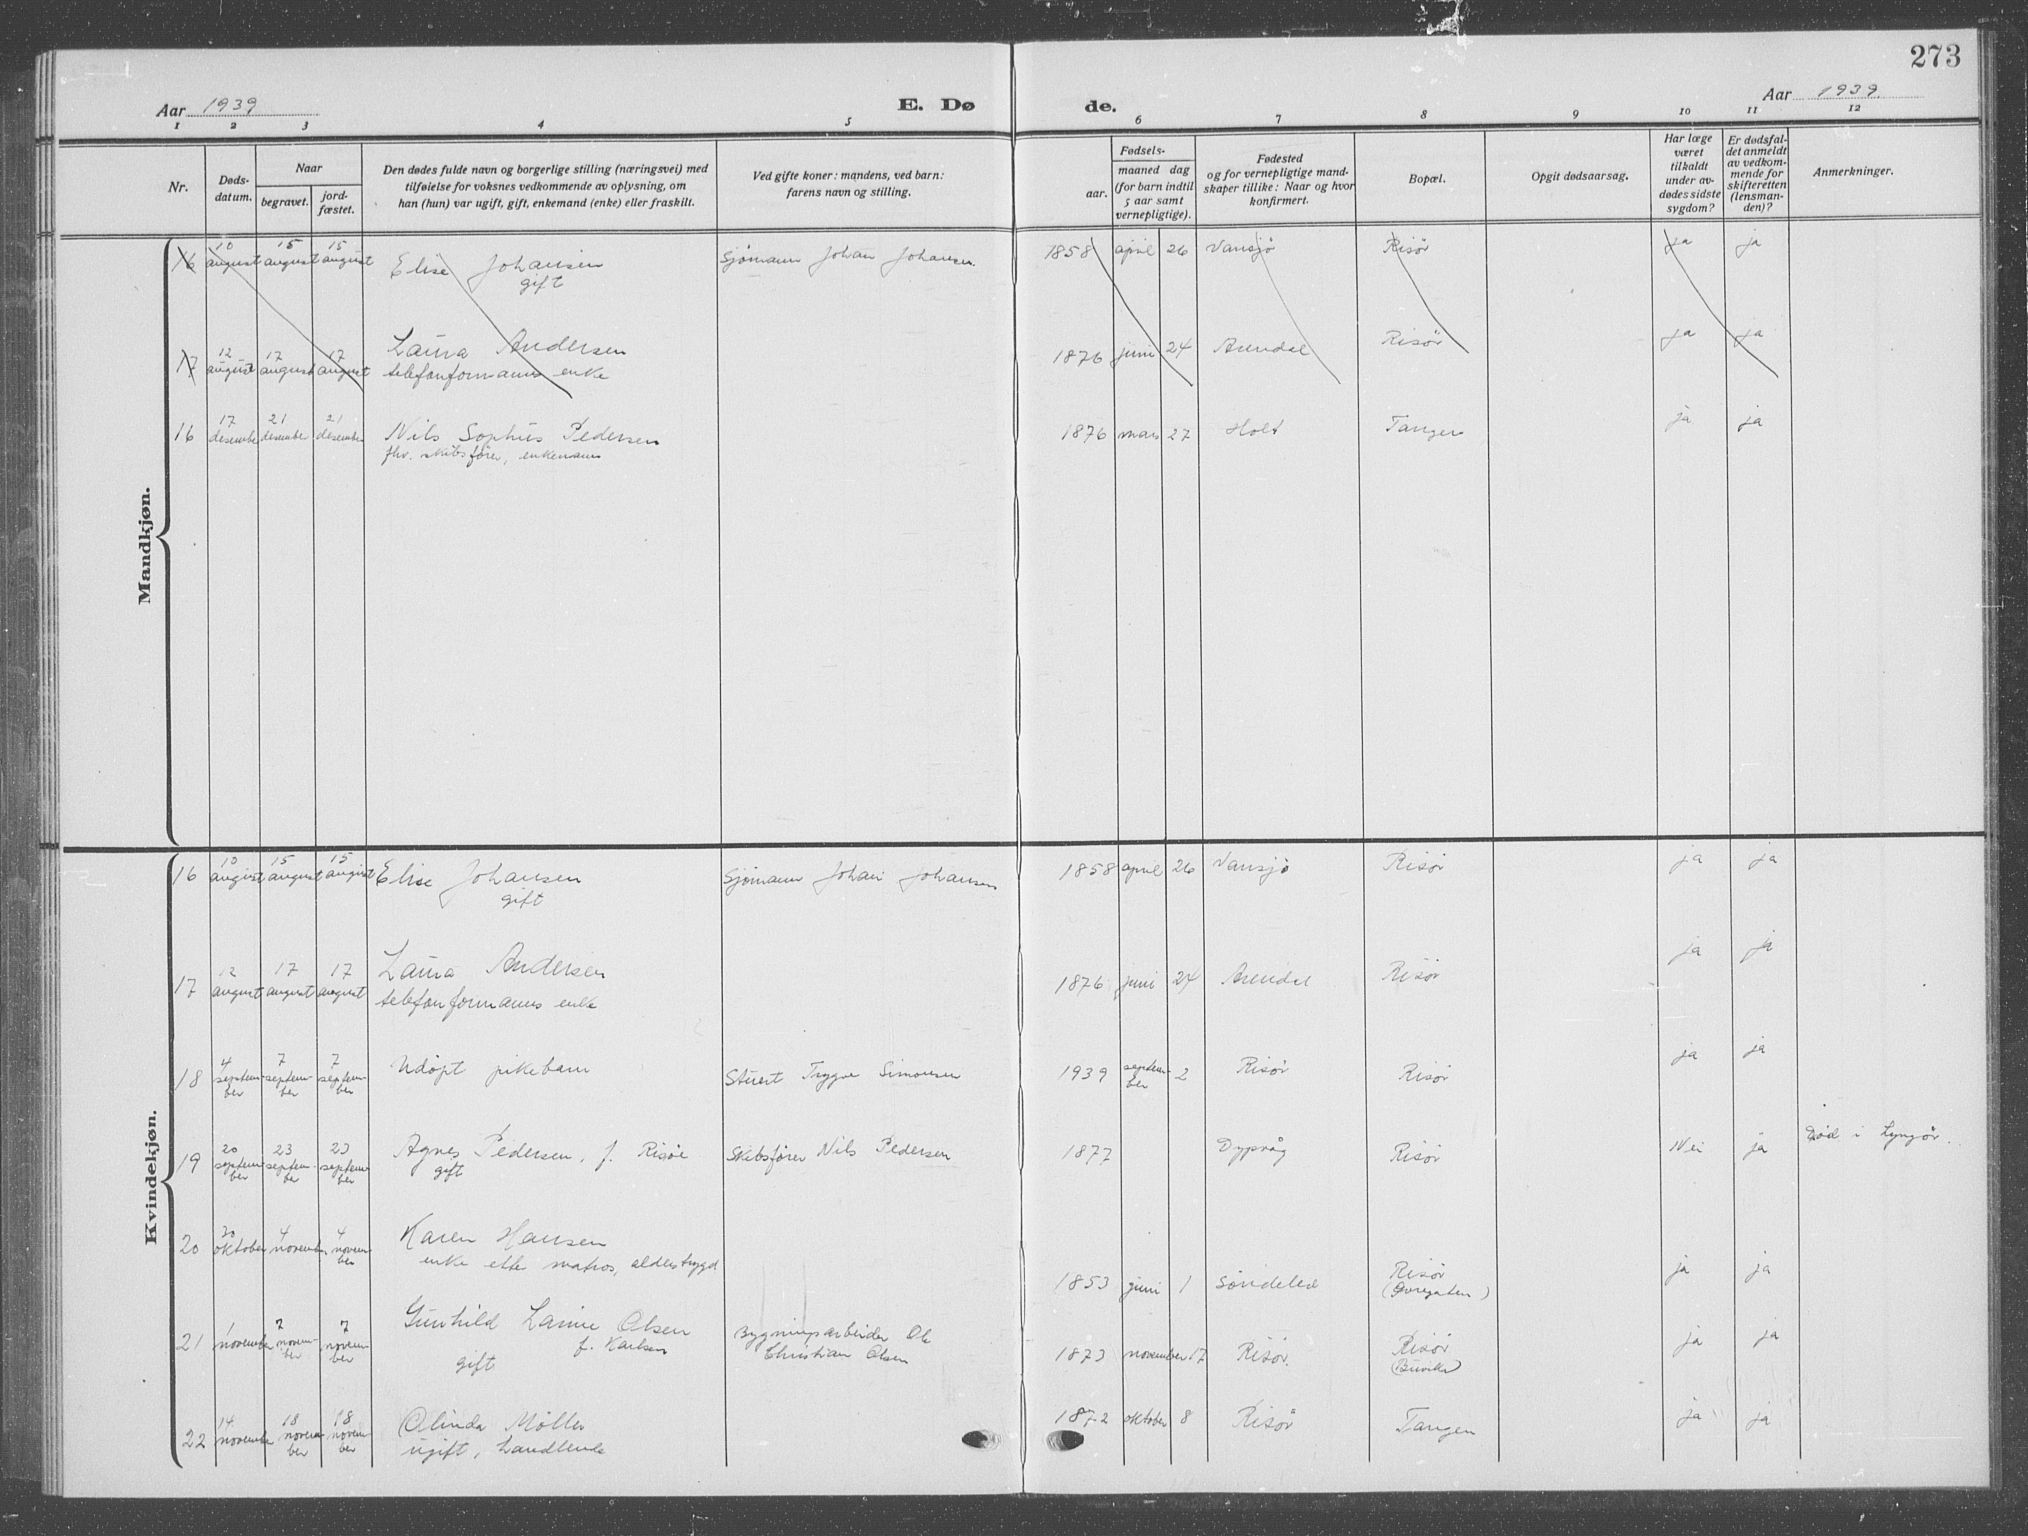 273
Aar 1939
E. Dø
de.
Aar 1939.
1 2 3 4 5 6 7 8 9 10 11 12
Nr.
Døds-
datum.
Naar
begravet.
jord-
fæstet.
Den dødes fulde navn og borgerlige stilling (næringsvei) med
tilføielse for voksnes vedkommende av oplysning, om
han (hun) var ugift, gift, enkemand (enke) eller fraskilt.
Ved gifte koner: mandens, ved barn:
farens navn og stilling.
Fødsels-
aar.
maaned dag
(for barn indtil
5 aar samt
vernepligtige).
Fødested
og for vernepligtige mand-
skaper tillike: Naar og hvor
konfirmert.
Bopæl.
Opgit dødsaarsag.
Har læge
været
tilkaldt
under av-
dødes sidste
sygdom?
Er dødsfal-
det anmeldt
av vedkom-
mende for
skifteretten
(lensman-
den)?
Anmerkninger.
Mandkjøn.
10 15 15
16 august august august Elise Johansen Sjømann Johan Johansen. 1858 april 26 Vansjø Risør ja ja
gift
12 17 17
17 august august august Laura Andersen 1876 juni 24 Arendal Risør ja ja
telefonformanns enke
17 21 21
16 desember desember desember Nils Sophus Pedersen 1876 mars 27 Holt Tangen ja ja
fhv. skibsfører, enkemann
Kvindekjøn.
10 15 15
16 august august august Elise Johansen Sjømann Johan Johansen 1858 april 26 Vansjø Risør ja ja
gift
12 17 17
17 august august august Laura Andersen 1876 juni 24 Arendal Risør ja ja
telefonformanns enke
4 7 7
18 septem- septem- septem- Udøpt pikebarn Stuert Trygve Simonsen 1939 septem- 2 Risør Risør ja ja
ber ber ber ber
20 23 23
19 septem- septem- septem- Agnes Pedersen, f. Risøe Skibsfører Nils Pedersen 1877 Dypvåg Risør Nei ja Død i Lyngør.
ber ber ber gift
20 4 4
20 oktober november novem- Karen Hansen
ber enke etter matros, alderstrygd 1853 juni 1 Søndeled Risør ja ja
1 7 7
21 november novem- novem- Gunhild Olsen Bygningsarbeider Ole 1873 november 17 Risør. Risør ja ja
ber ber f. Karlsen Christian Olsen (Buvika)
gift
14 18 18
22 november novem- novem- Olinda Møller 1872 oktober 8 Risør Tangen ja ja
ber ber ugift, handlende